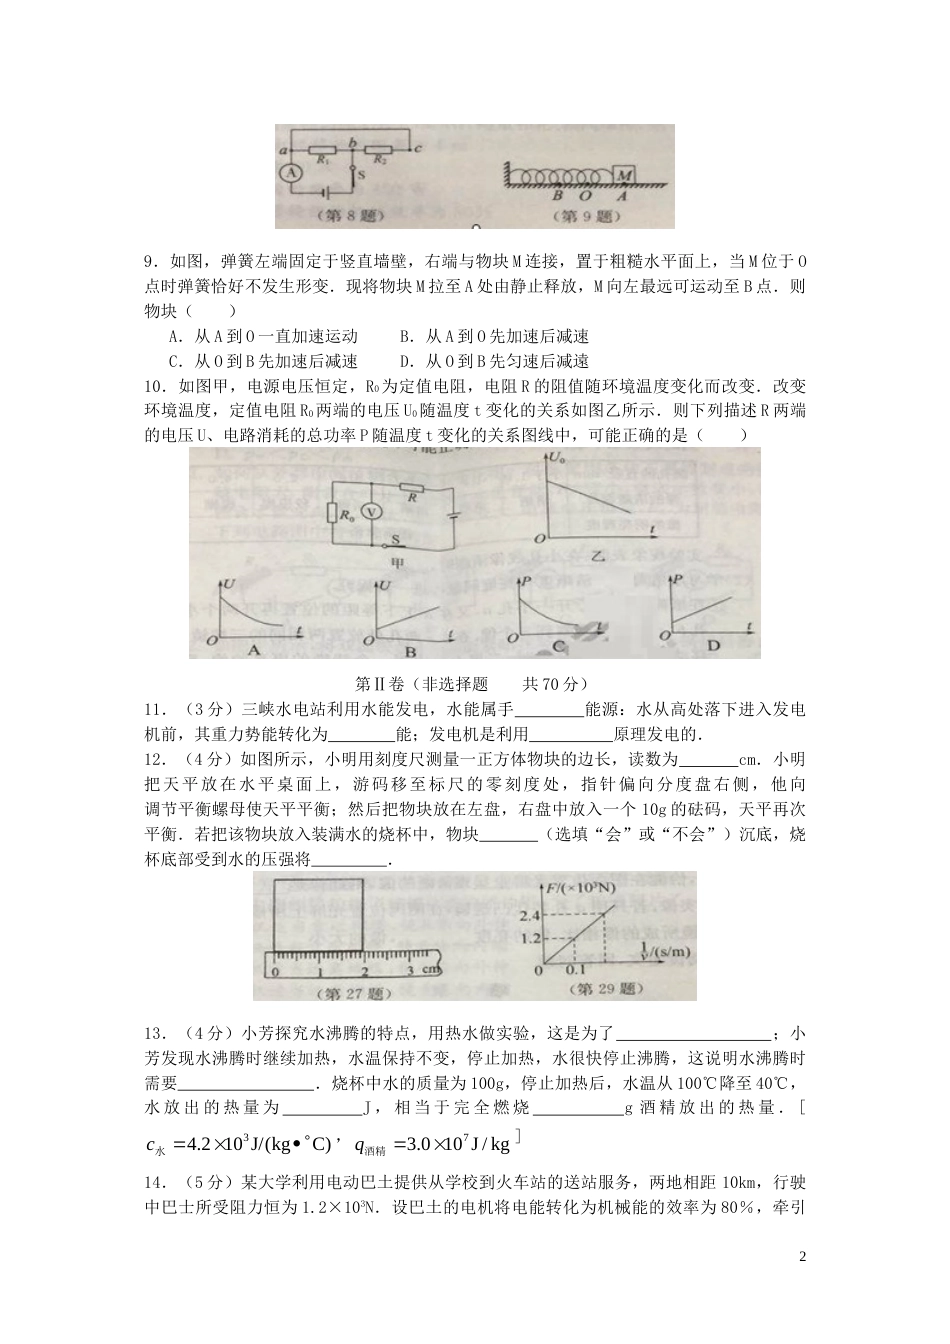 a b c
R₁ R₂
A S
M
B O A
(第8题) (第9题)
9．如图，弹簧左端固定于竖直墙壁，右端与物块 M 连接，置于粗糙水平面上，当 M 位于 O
点时弹簧恰好不发生形变．现将物块 M 拉至 A 处由静止释放，M 向左最远可运动至 B 点．则
物块（　　）
A．从 A 到 O 一直加速运动　　B．从 A 到 O 先加速后减速
C．从 O 到 B 先加速后减速　　D．从 O 到 B 先匀速后减遠
10．如图甲，电源电压恒定，R₀为定值电阻，电阻 R 的阻值随环境温度变化而改变．改变
环境温度，定值电阻 R₀两端的电压 U₀随温度 t 变化的关系如图乙所示．则下列描述 R 两端
的电压 U、电路消耗的总功率 P 随温度 t 变化的关系图线中，可能正确的是（　　）
R
R₀ V
S
甲
U₀
O t
乙
U U P P
O t O t O t O t
A B C D
第Ⅱ卷（非选择题　　共 70 分）
11．（3 分）三峡水电站利用水能发电，水能属手________能源：水从高处落下进入发电
机前，其重力势能转化为________能；发电机是利用__________原理发电的．
12．（4 分）如图所示，小明用刻度尺测量一正方体物块的边长，读数为_______cm．小明
把天平放在水平桌面上，游码移至标尺的零刻度处，指针偏向分度盘右侧，他向
调节平衡螺母使天平平衡；然后把物块放在左盘，右盘中放入一个 10g 的砝码，天平再次
平衡．若把该物块放入装满水的烧杯中，物块_______（选填“会”或“不会”）沉底，烧
杯底部受到水的压强将_________．
0 1 2 3 cm
(第27题)
F/(×10³N)
2.4
1.2
0 0.1
1/v/(s/m)
(第29题)
13．（4 分）小芳探究水沸腾的特点，用热水做实验，这是为了___________________；小
芳发现水沸腾时继续加热，水温保持不变，停止加热，水很快停止沸腾，这说明水沸腾时
需要________________．烧杯中水的质量为 100g，停止加热后，水温从 100℃降至 40℃，
水放出的热量为__________J，相当于完全燃烧___________g 酒精放出的热量．[
c水=4.2×10³J/(kg•°C)，q酒精=3.0×10⁷J/kg]
14．（5 分）某大学利用电动巴土提供从学校到火车站的送站服务，两地相距 10km，行驶
中巴士所受阻力恒为 1.2×103N．设巴土的电机将电能转化为机械能的效率为 80％，牵引
2